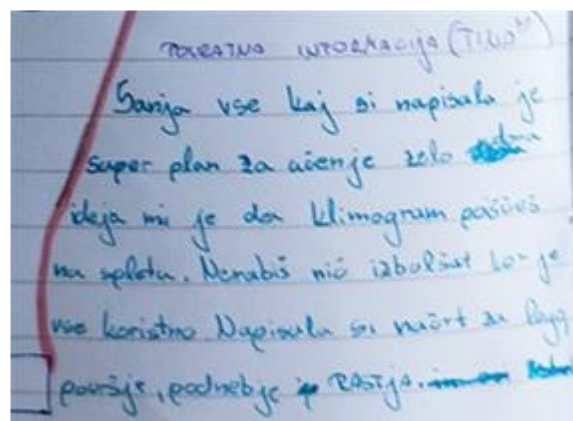 POVRATNA INFORMACIJA (TINA
Sanja vse kaj si napisala je
super plan za učenje zelo
ideja mi je da klimogram poiščeš
na spletu. Nerabiš nič izbolšat ker je
vse koristno Napisala si načrt za
površje, podnebje in RASTJA.